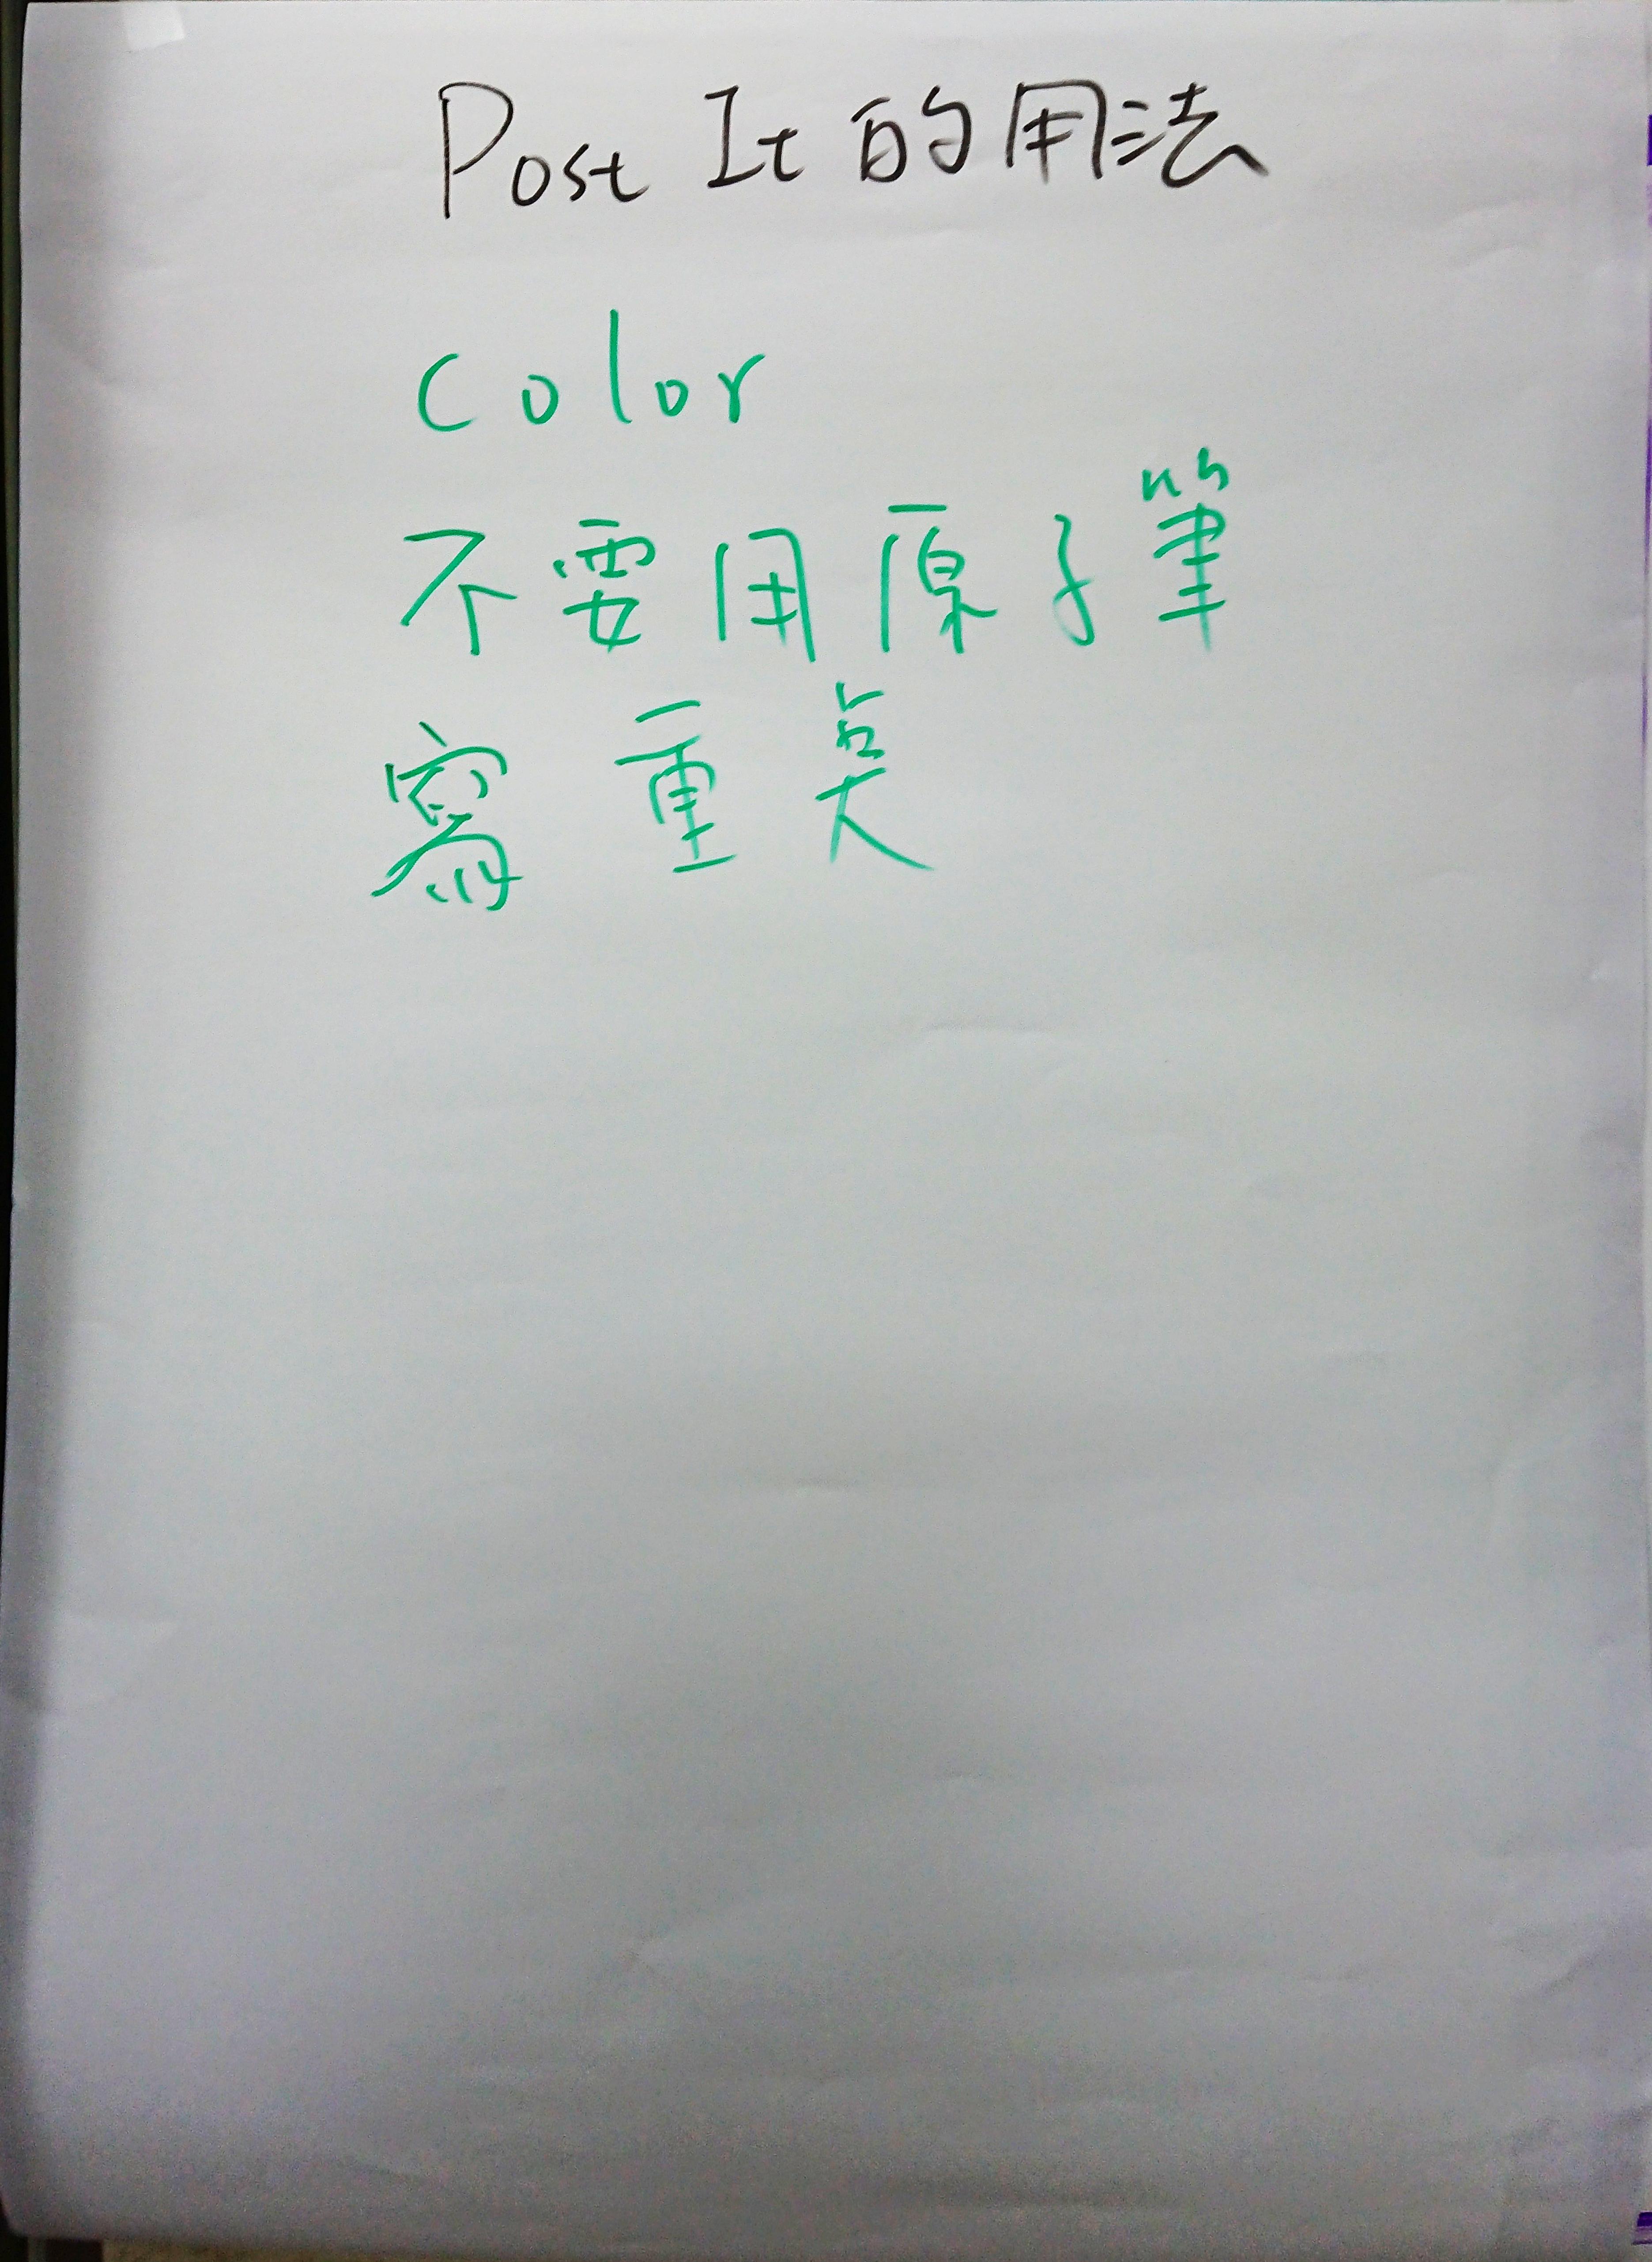 Post It 的用法
color
不要用原子筆
寫重奌